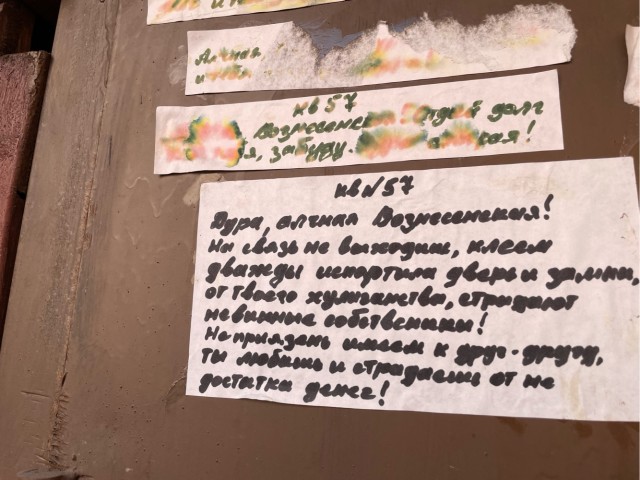 и н
Алчная
и
кв 57
Вознесенс Отдай долг
я, забуду. кая!
кв N57
Дура, алчная Вознесенская!
На связь не выходиш, клеем
дважды испортила дверь и замки,
от твоего хулиганства, стридают
невинные собственики!
Не приязень имеем к друг-другу,
ты любишь и страдаешь от не
достатка денег!